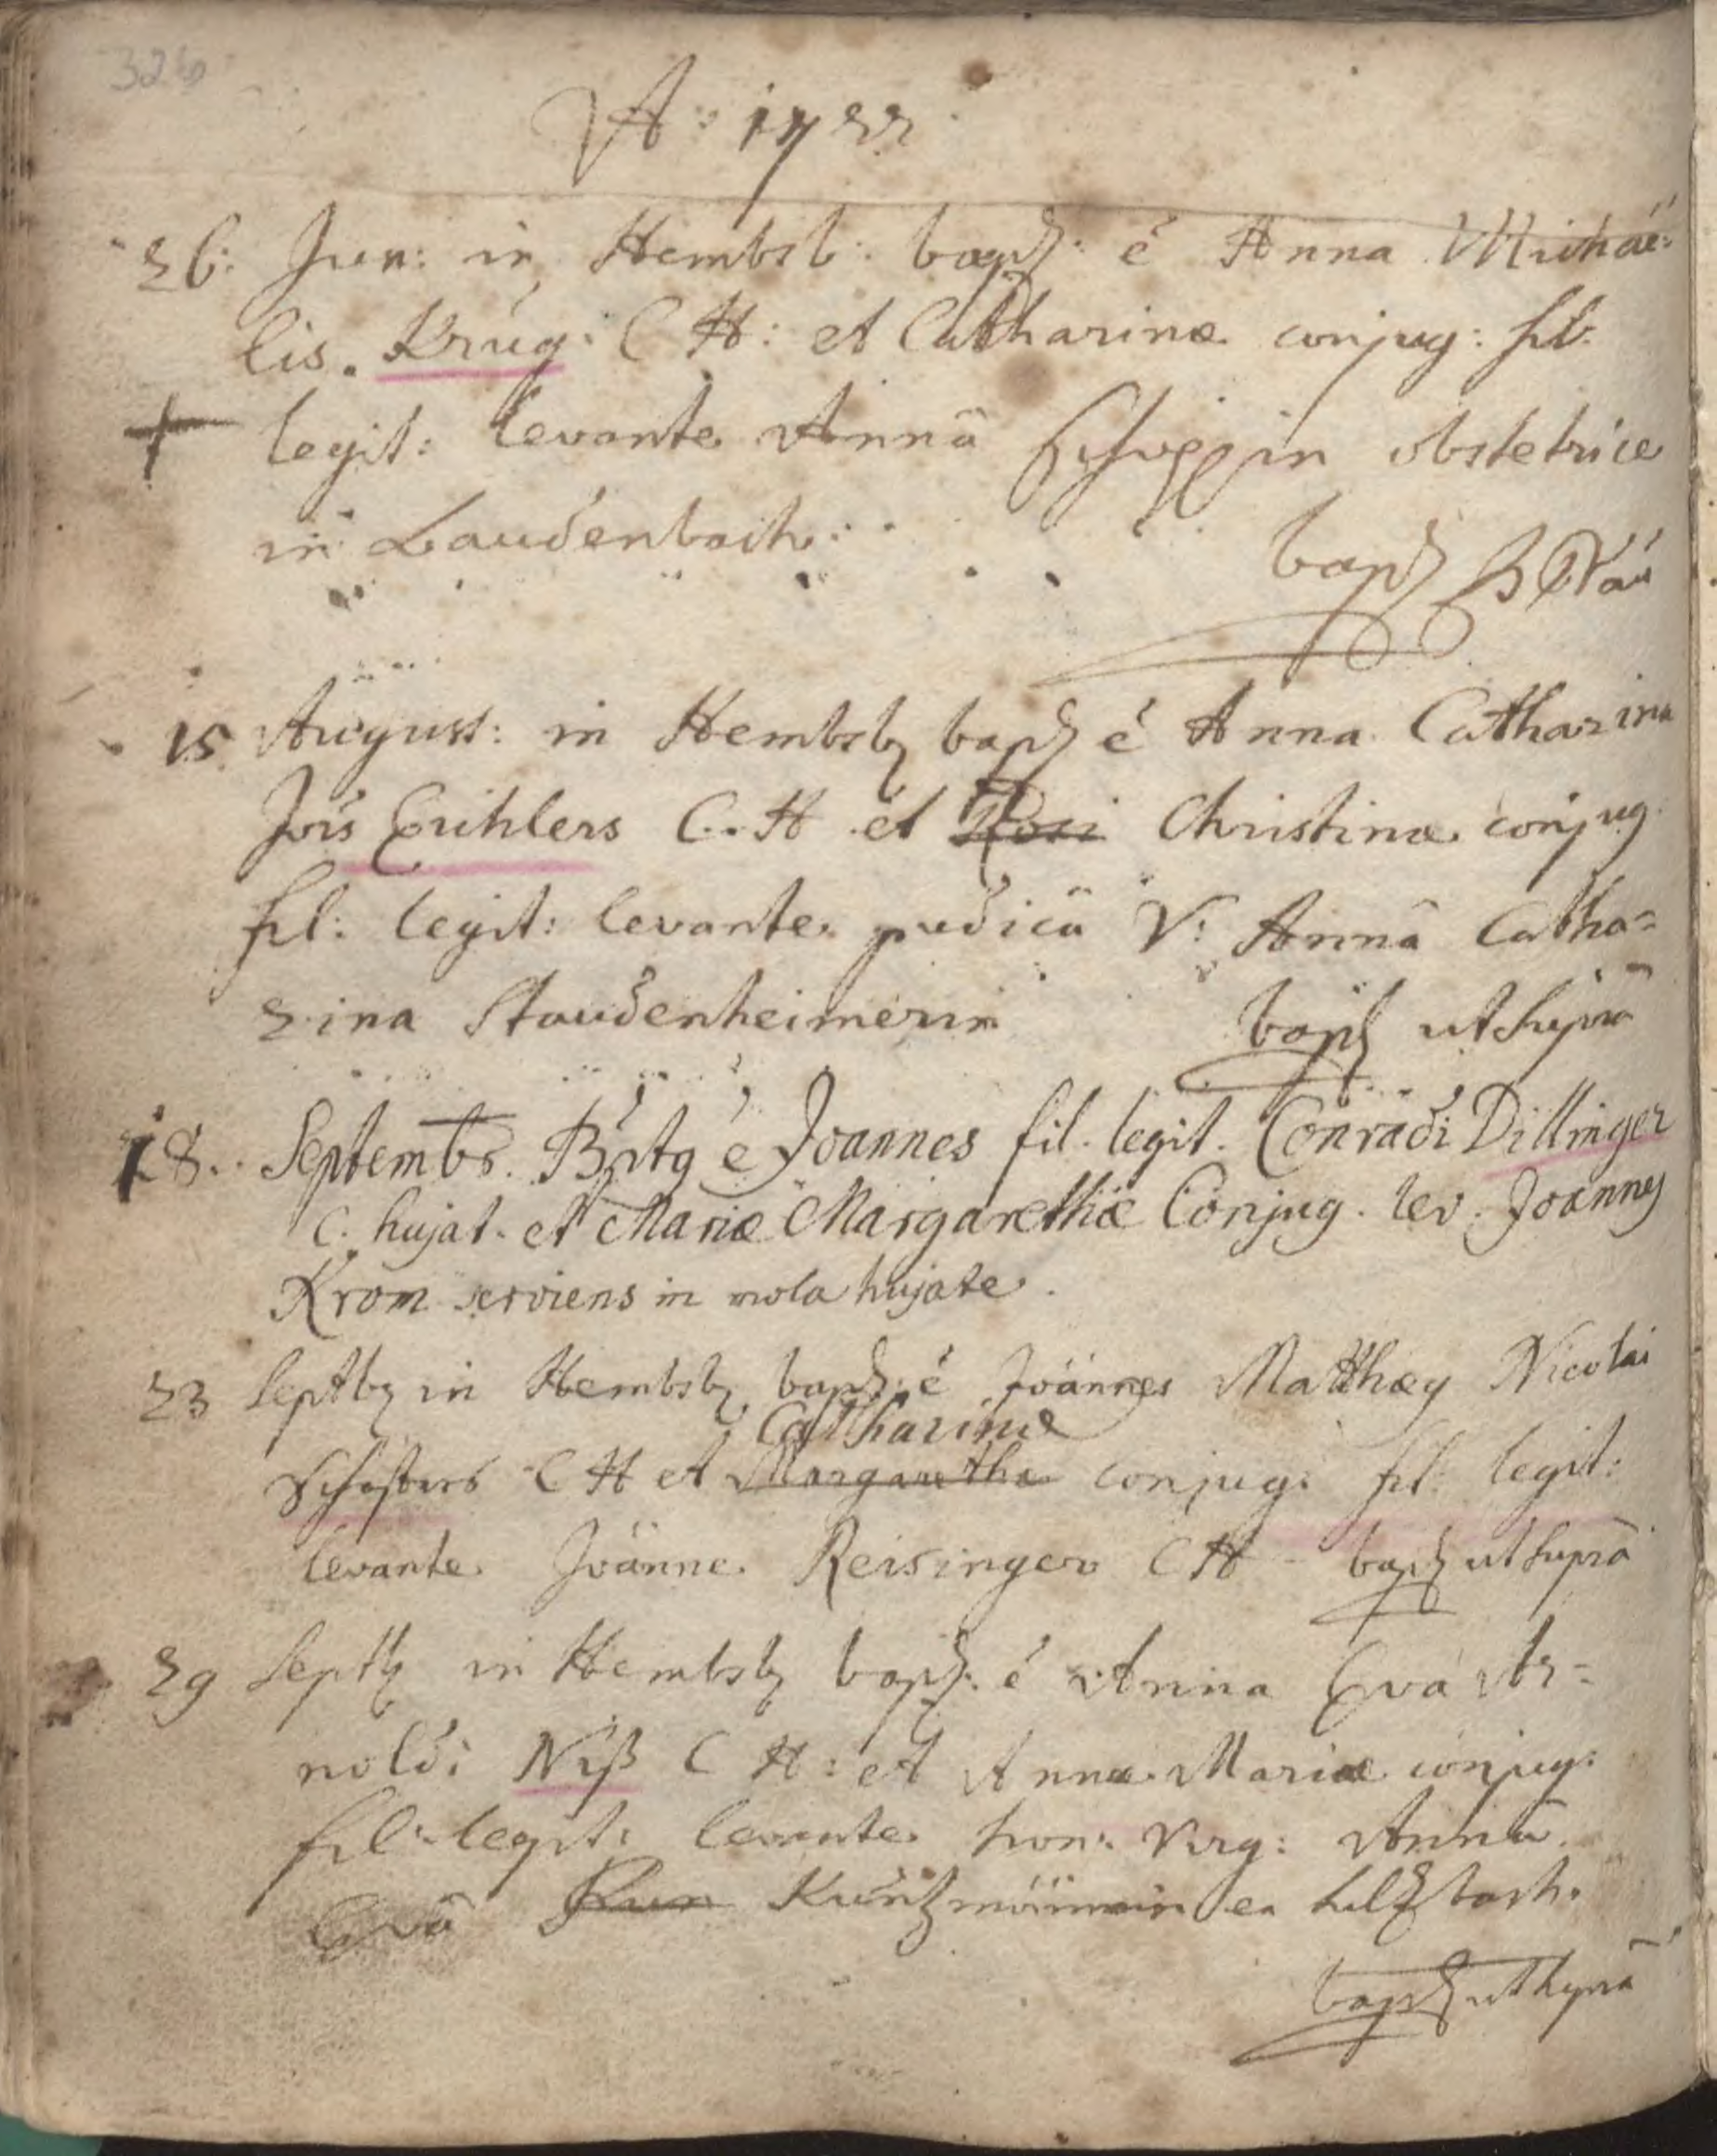 326
A: 1722
26: Jun: in Hembsb: bapt: ē Anna Michaë:
lis. Krug: C H: et Catharinæ conjug: fil:
+ legit: levante Annâ obstetrice
in Laudenbach:
bapt
15 August: in Hembsb bapt ē Anna Catharina
Jois C. H et Rosi Christinæ conjug
fil: legit: levante pudicâ V: Annâ Catha=
rina Staudenheimerin bapt ut suprà
18. Septembr. Bpt9 ē Joannes fil. legit. Conradi Dillinger
C. hujat. et Mariæ Margarethæ Conjug. lev. Joannes
Krom serviens in mola hujate.
23 Septb in Hembsb bapt: ē Joannes Matthæy Nicolai
Catharinæ
C H et Margaretha conjug: fil: legit:
levante Joänne Reisinger C H bapt ut suprà
29 Septb in Hembsb bapt: ē Anna Eva Ar=
noldi Niß C H: et Annæ Mariæ conjug:
fil: legit: levante hon: Virg: Annâ
Evâ Kun Kuntzmännin ex
bapt ut suprà